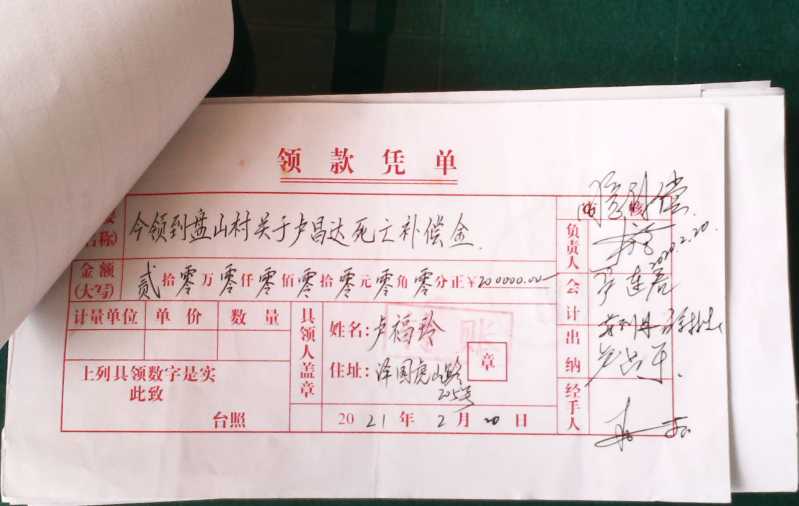 领款凭单
今领到盘山村关于卢昌达死亡补偿金.
名称)
金额
(大写)
贰拾零万零仟零佰零拾零元零角零分正¥200000.00
计量单位 单价 数量
上列具领数字是实
此致
台照
具领人盖章
姓名: 卢福玲
章
住址: 泽国虎山路
205号
2021年2月20日
负责人
2.20.
会计
出纳
经手人
账